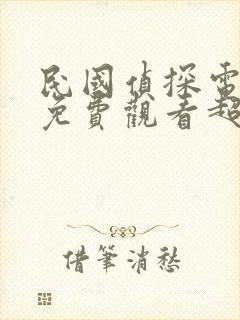 民國偵探電
免費觀看超
借筆消愁